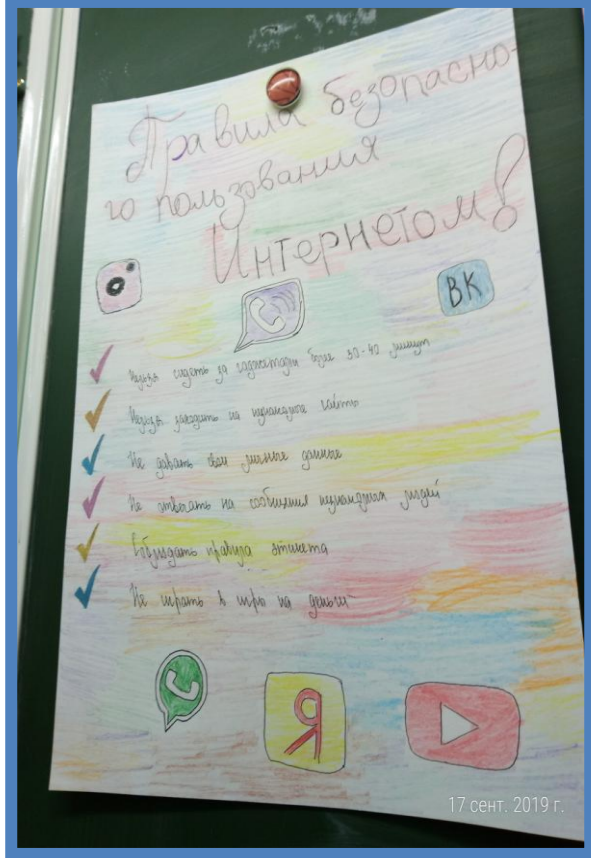 Правила безопасно-
го пользования
Интернетом!
ВК
Нельзя сидеть за гаджетами более 30-40 минут
Нельзя заходить на незнакомые сайты
Не давать свои личные данные
Не отвечать на сообщения незнакомых людей
Соблюдать правила этикета
Не играть в игры на деньги
Я
17 сент. 2019 г.